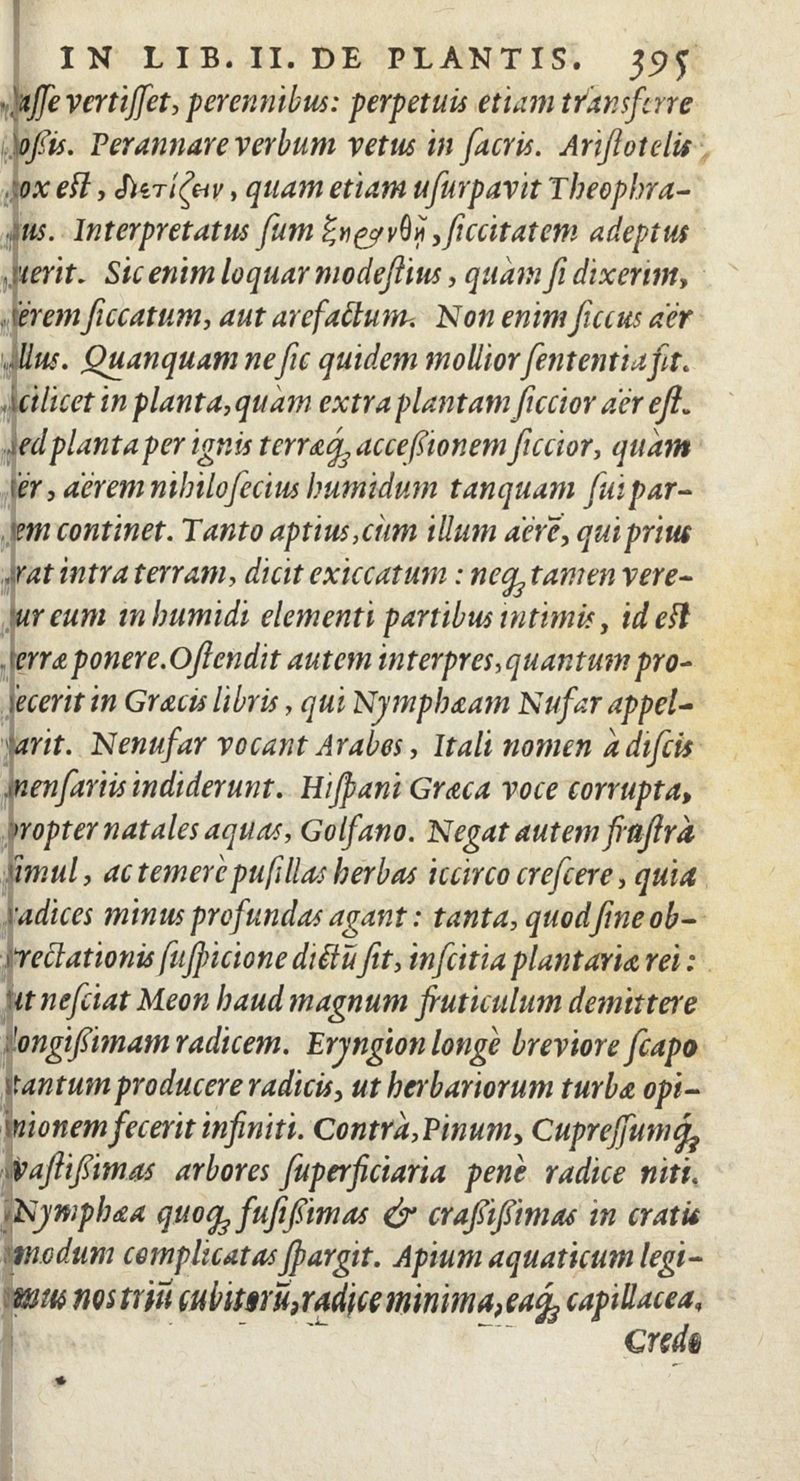 IN LIB. II. DE PLANTIS. 395
asſe vertiſſet, perennibus: perpetuis etiam transferre
oßis. Perannare verbum vetus in ſacris. Ariſtotelis
ox eſt, διετίζειν, quam etiam uſurpavit Theophra-
us. Interpretatus ſum ξηρανθῇ, ſiccitatem adeptus
uerit. Sic enim loquar modeſtius, quàm ſi dixerim,
ërem ſiccatum, aut arefactum. Non enim ſiccus aër
llus. Quanquam ne ſic quidem mollior ſententia fit.
cilicet in planta, quàm extra plantam ſiccior aër eſt.
ed planta per ignis terræq́; acceßionem ſiccior, quàm
ër, aërem nihiloſecius humidum tanquam ſui par-
em continet. Tanto aptius, cùm illum aërē, qui prius
rat intra terram, dicit exiccatum: neq; tamen vere-
ur eum in humidi elementi partibus intimis, id eſt
erræ ponere. Oſtendit autem interpres, quantum pro-
ecerit in Græcis libris, qui Nymphæam Nufar appel-
arit. Nenufar vocant Arabes, Itali nomen à diſcis
menſariis indiderunt. Hiſpani Græca voce corrupta,
propter natales aquas, Golfano. Negat autem fruſtrà
ſimul, ac temerè puſillas herbas iccirco creſcere, quia
radices minus profundas agant: tanta, quod ſine ob-
trectationis ſuſpicione dictū ſit, inſcitia plantariæ rei:
ut neſciat Meon haud magnum fruticulum demittere
longißimam radicem. Eryngion longè breviore ſcapo
tantum producere radicis, ut herbariorum turbæ opi-
nionem fecerit infiniti. Contrà, Pinum, Cupreſſumq́;
vaſtißimas arbores ſuperficiaria penè radice niti.
Nymphæa quoq; fuſißimas & craßißimas in cratis
modum complicatas ſpargit. Apium aquaticum legi-
mus nos triū cubitorū, radice minima, eaq́; capillacea,
Credo